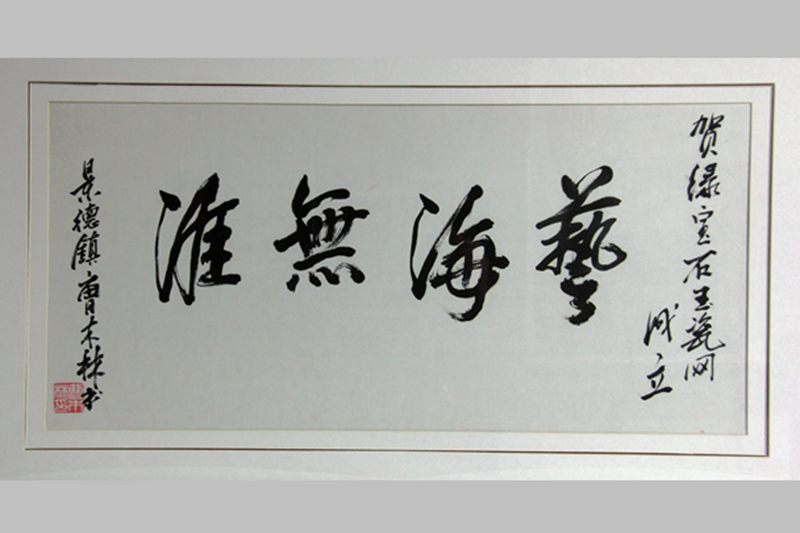 贺绿宝石玉瓷网
成立
藝海無涯
景德鎮曹木林书